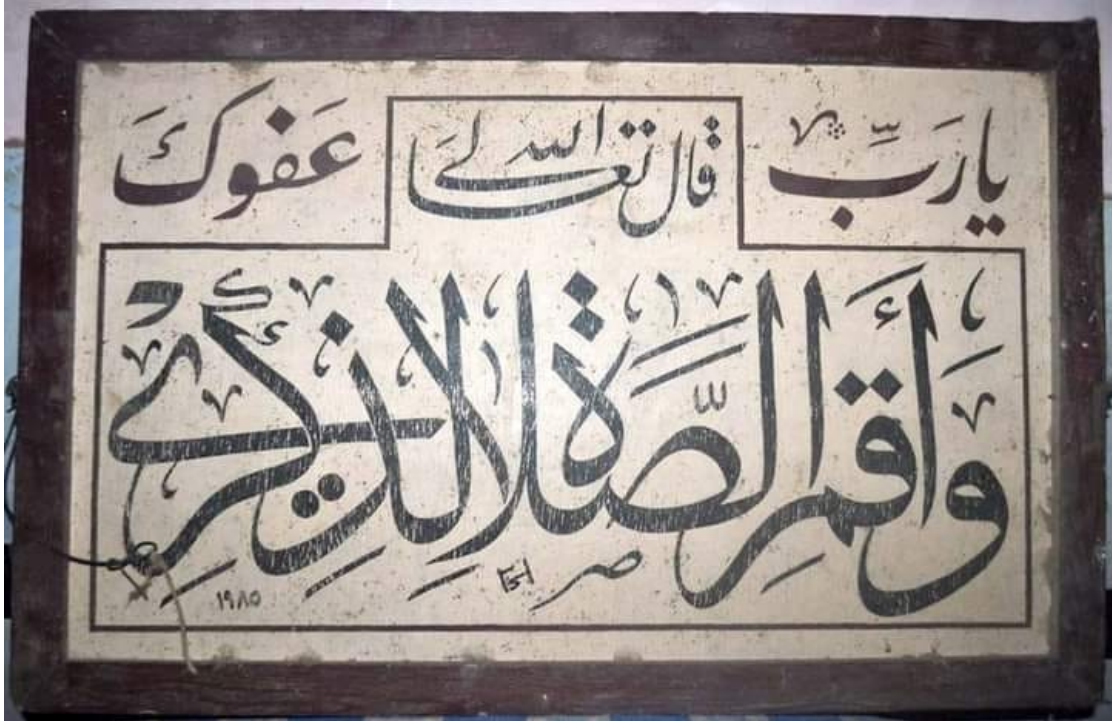 يارَبِّ قال الله تعالى عَفوكَ
وَأَقِمِ الصَّلاةَ لِذِكْرِي
١٩٨٥